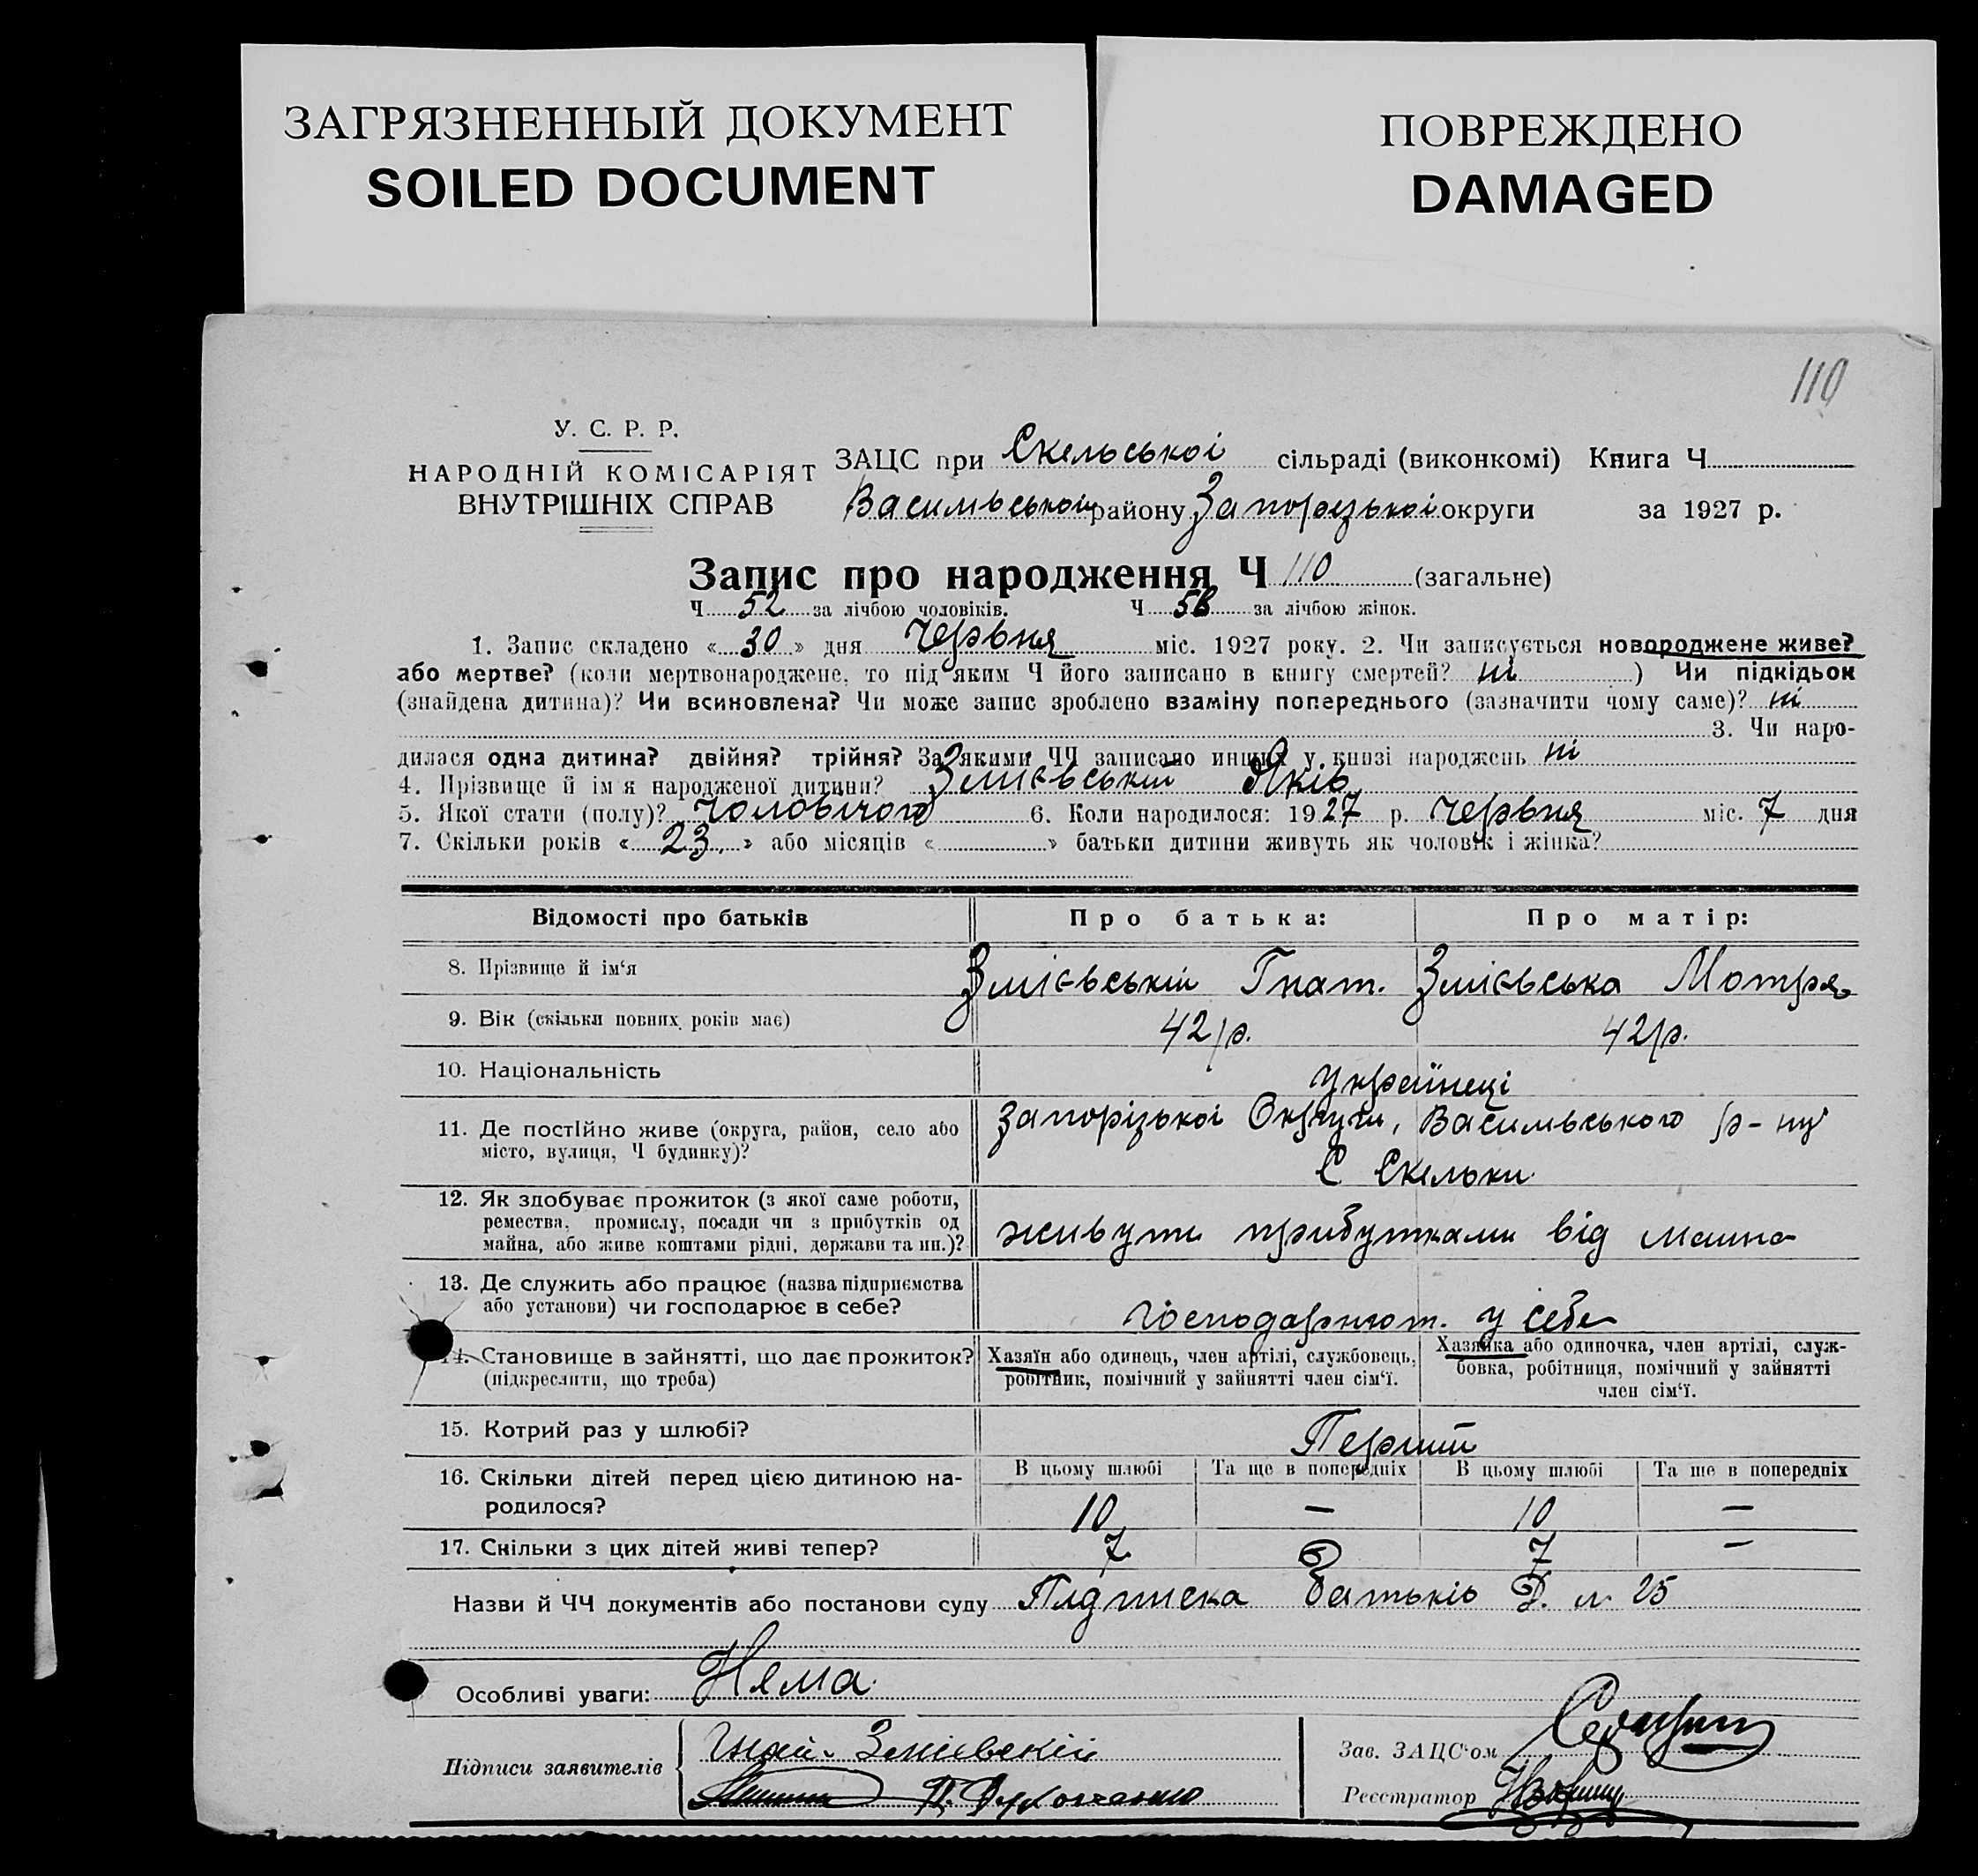 ЗАГРЯЗНЕННЫЙ ДОКУМЕНТ
SOILED DOCUMENT
ПОВРЕЖДЕНО
DAMAGED
110
У. С. Р. Р.
НАРОДНІЙ КОМІСАРІЯТ
ВНУТРІШНІХ СПРАВ
ЗАЦС при Скельської сільраді (виконкомі) Книга Ч
Васильвської району Запорізької округи за 1927 р.
Запис про народження Ч 110 (загальне)
Ч 52 за лічбою чоловіків. Ч 58 за лічбою жінок.
1. Запис складено « 30 » дня червня міс. 1927 року. 2. Чи записується новороджене живе?
або мертве? (коли мертвонароджене, то під яким Ч його записано в книгу смертей? ні ) Чи підкідьок
(знайдена дитина)? Чи всиновлена? Чи може запис зроблено взаміну попереднього (зазначити чому саме)? ні
3. Чи наро-
дилася одна дитина? двійня? трійня? За якими ЧЧ записано инших у книзі народжень ні
4. Прізвище й ім'я народженої дитини? Змієвський Яків
5. Якої стати (полу)? чоловічого 6. Коли народилося: 1927 р. червня міс. 7 дня
7. Скільки років « 23 » або місяців « » батьки дитини живуть як чоловік і жінка?
Відомості про батьків Про батька: Про матір:
8. Прізвище й ім'я Змієвській Гнат. Змієвська Мотря
9. Вік (скільки повних років має) 42 р. 42 р.
10. Національність Українеці
11. Де постійно живе (округа, район, село або Запорізької Округи, Васильвського р-ну
місто, вулиця, Ч будинку)? С Скельки
12. Як здобуває прожиток (з якої саме роботи,
ремества, промислу, посади чи з прибутків од
майна, або живе коштами рідні, держави та ин.)? живуть прибутками від майна
13. Де служить або працює (назва підприємства
або установи) чи господарює в себе? Господарюют. у себе
14. Становище в зайнятті, що дає прожиток? Хазяїн або одинець, член артілі, службовець, Хазяйка або одиночка, член артілі, служ-
(підкреслити, що треба) робітник, помічний у зайнятті член сім'ї. бовка, робітниця, помічний у зайнятті
член сім'ї.
15. Котрий раз у шлюбі? Перший
16. Скільки дітей перед цією дитиною на- В цьому шлюбі Та ще в попередніх В цьому шлюбі Та ще в попередніх
родилося? 10 — 10 —
17. Скільки з цих дітей живі тепер? 7 7 —
Назви й ЧЧ документів або постанови суду Підписка батьків 25
Особливі уваги: Нема
Підписи заявителів Змиевский
Зав. ЗАЦС'ом
Реєстратор